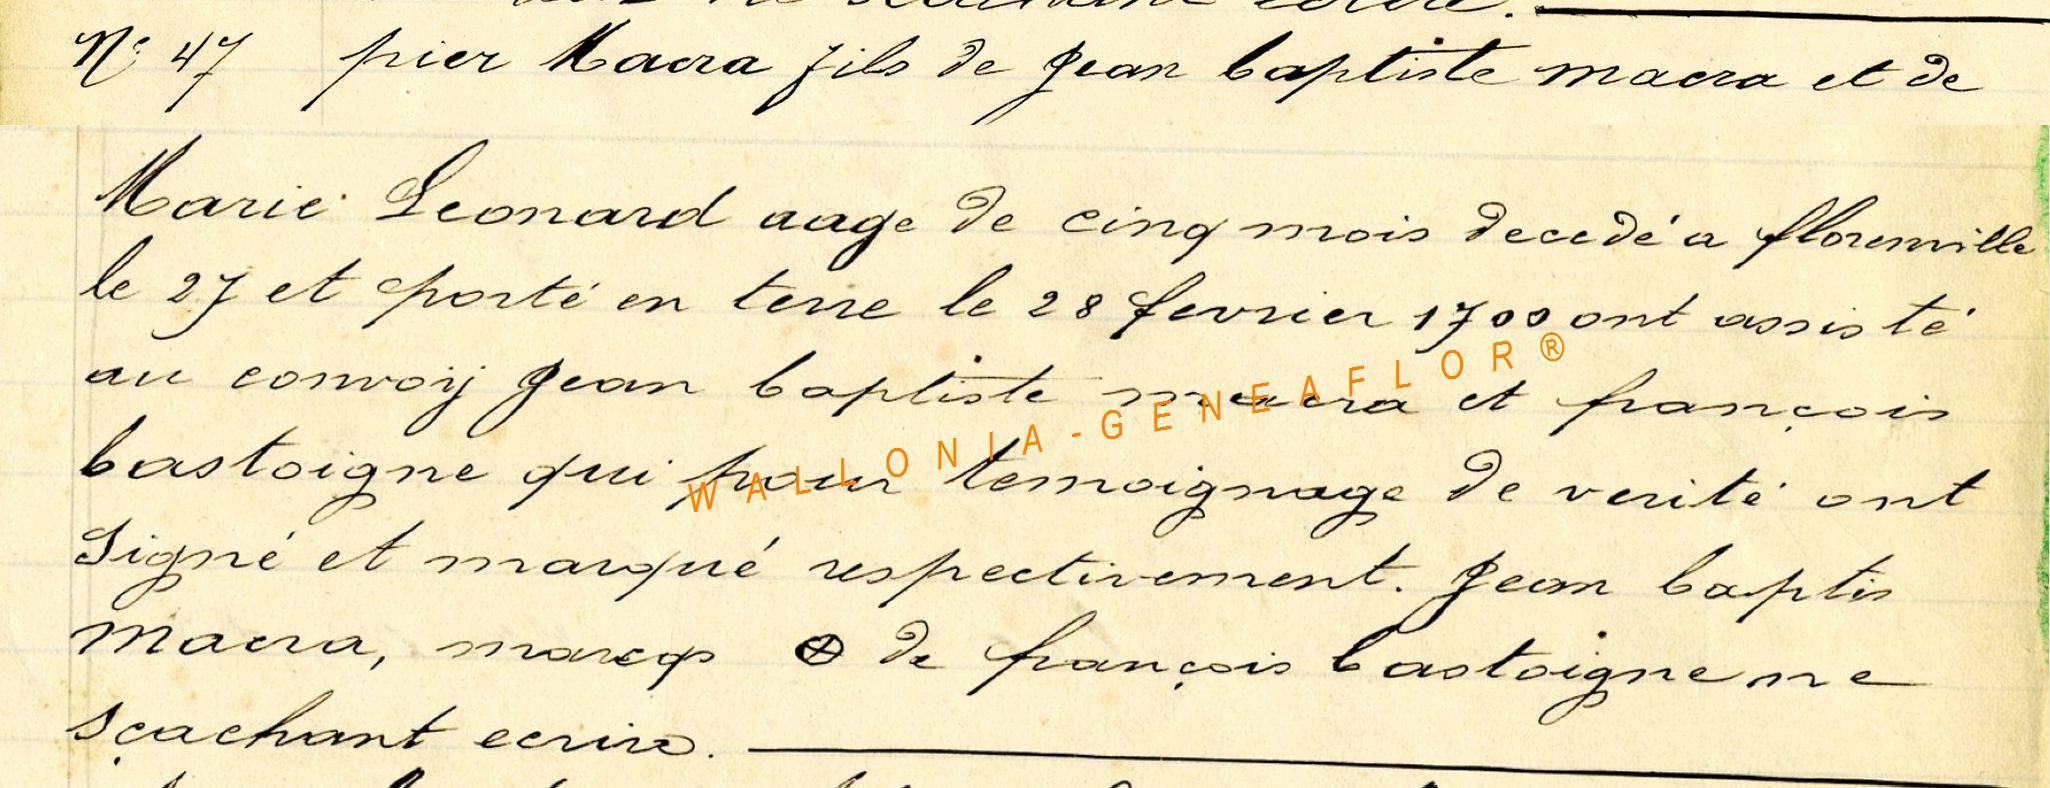 ne sçachant ecrire.
N° 47 pier Macra fils de Jean baptiste macra et de
Marie Leonard aage de cinq mois decedé a florenville
le 27 et porté en terre le 28 fevrier 1700 ont assisté
au convoij Jean baptiste macra et françois
bastoigne qui pour temoignage de verité ont
Signé et marqué respectivement. Jean baptis
macra, marcq ⊗ de françois bastoigne ne
sçachant ecrire.
WALLONIA-GENEAFLOR®